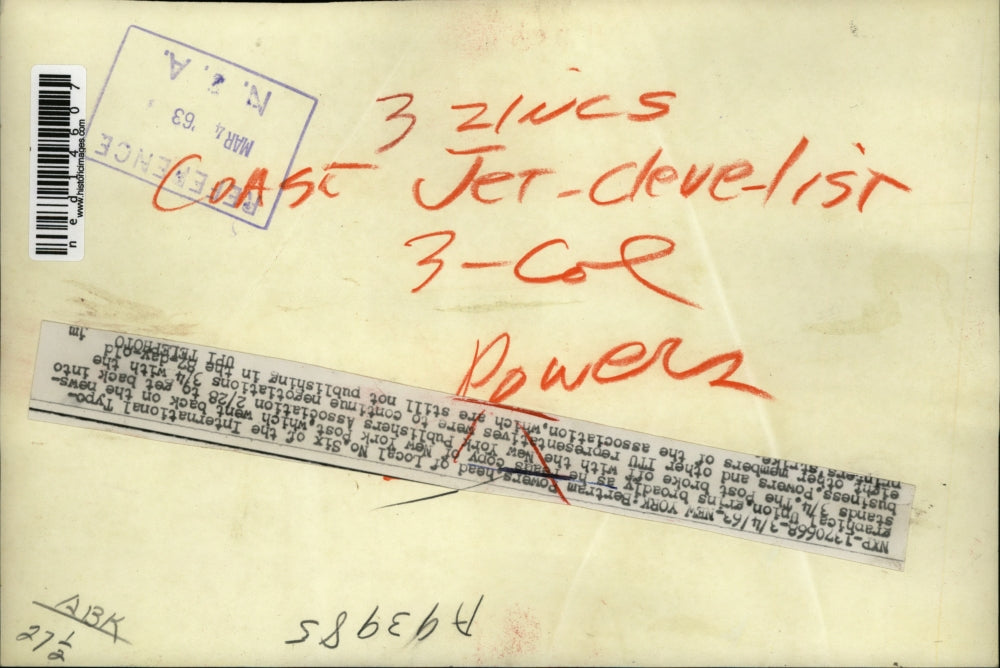 3 ZINCS
COAST JET-cleve-list
3-Col
Powers
REFERENCE
MAR 4 '63
N. E. A.
ned14607
www.historicimages.com
NXP-1370668-3/4/63-NEW YORK: Bertram Powers,head of Local No. Six of the International Typo-
graphical Union,grins broadly as he copy of New York Post,which went back on the news-
stands 3/4. The Post broke off with the New York Publishers Association 2/28 to get back into
business. Powers and other ITU representatives were to continue negotiations 3/4 with the
eight other members of the association,which are still not publishing in the 87-day-old
printers strike. UPI TELEPHOTO jm
A93985
ABK
27 1/2